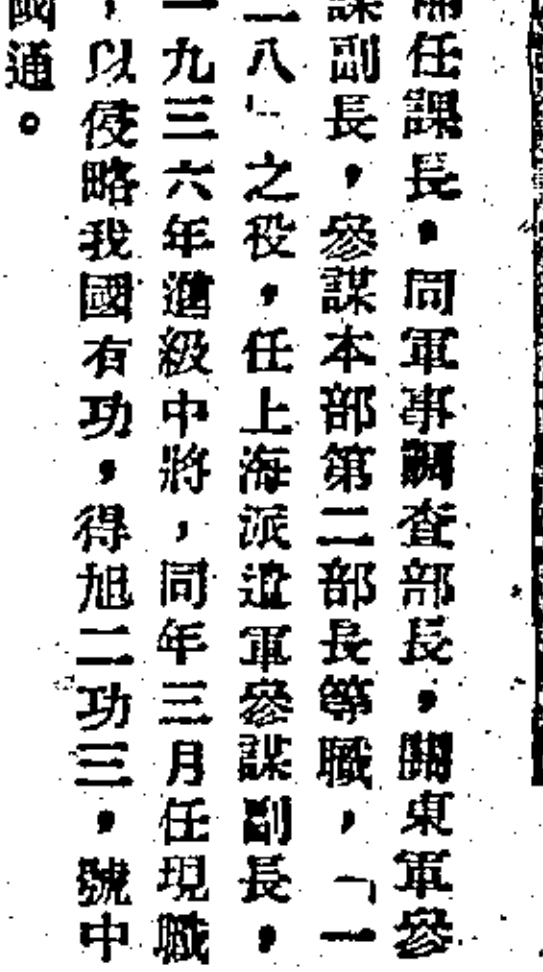 任課長，同軍事調查部長，關東軍參
謀副長，參謀本部第二部長等職，「一
二八」之役，任上海派遣軍參謀副長，
一九三六年進級中將，同年三月任現職
，以侵略我國有功，得旭二功三，號中
國通。